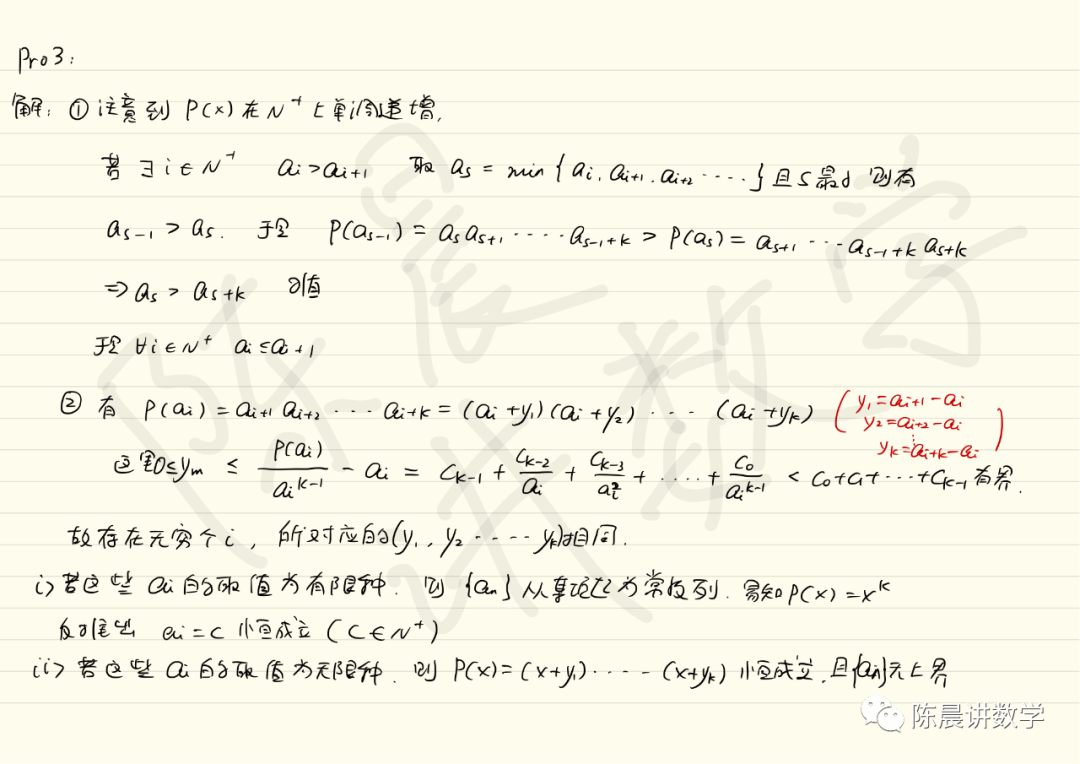 Pro3:
解: ① 注意到 P(x) 在 N⁺ 上单调递增,
若 ∃ i ∈ N⁺ aᵢ > aᵢ₊₁ 取 aₛ = min { aᵢ, aᵢ₊₁, aᵢ₊₂ ····· } 且 S 最小 则有
aₛ₋₁ > aₛ. 于是 P(aₛ₋₁) = aₛ aₛ₊₁ ····· aₛ₋₁₊ₖ > P(aₛ) = aₛ₊₁ ··· aₛ₋₁₊ₖ aₛ₊ₖ
⇒ aₛ > aₛ₊ₖ 矛盾
于是 ∀ i ∈ N⁺ aᵢ ≤ aᵢ₊₁
② 有 P(aᵢ) = aᵢ₊₁ aᵢ₊₂ ··· aᵢ₊ₖ = (aᵢ + y₁)(aᵢ + y₂) ··· (aᵢ + yₖ) ( y₁ = aᵢ₊₁ - aᵢ
y₂ = aᵢ₊₂ - aᵢ
⋮
yₖ = aᵢ₊ₖ - aᵢ )
这里 0 ≤ yₘ ≤ P(aᵢ)/aᵢᵏ⁻¹ - aᵢ = Cₖ₋₁ + Cₖ₋₂/aᵢ + Cₖ₋₃/aᵢ² + ···· + C₀/aᵢᵏ⁻¹ < C₀ + C₁ + ··· + Cₖ₋₁ 有界.
故存在无穷个 i, 所对应的 (y₁, y₂ ····· yₖ) 相同.
i> 若这些 aᵢ 的取值为有限种. 则 {aₙ} 从某项起为常数列. 易知 P(x) = xᵏ
反推出 aᵢ = C 恒成立 (C ∈ N⁺)
ii> 若这些 aᵢ 的取值为无限种. 则 P(x) = (x + y₁) ····· (x + yₖ) 恒成立, 且 {aₙ} 无上界
陈晨讲数学
陈晨讲数学